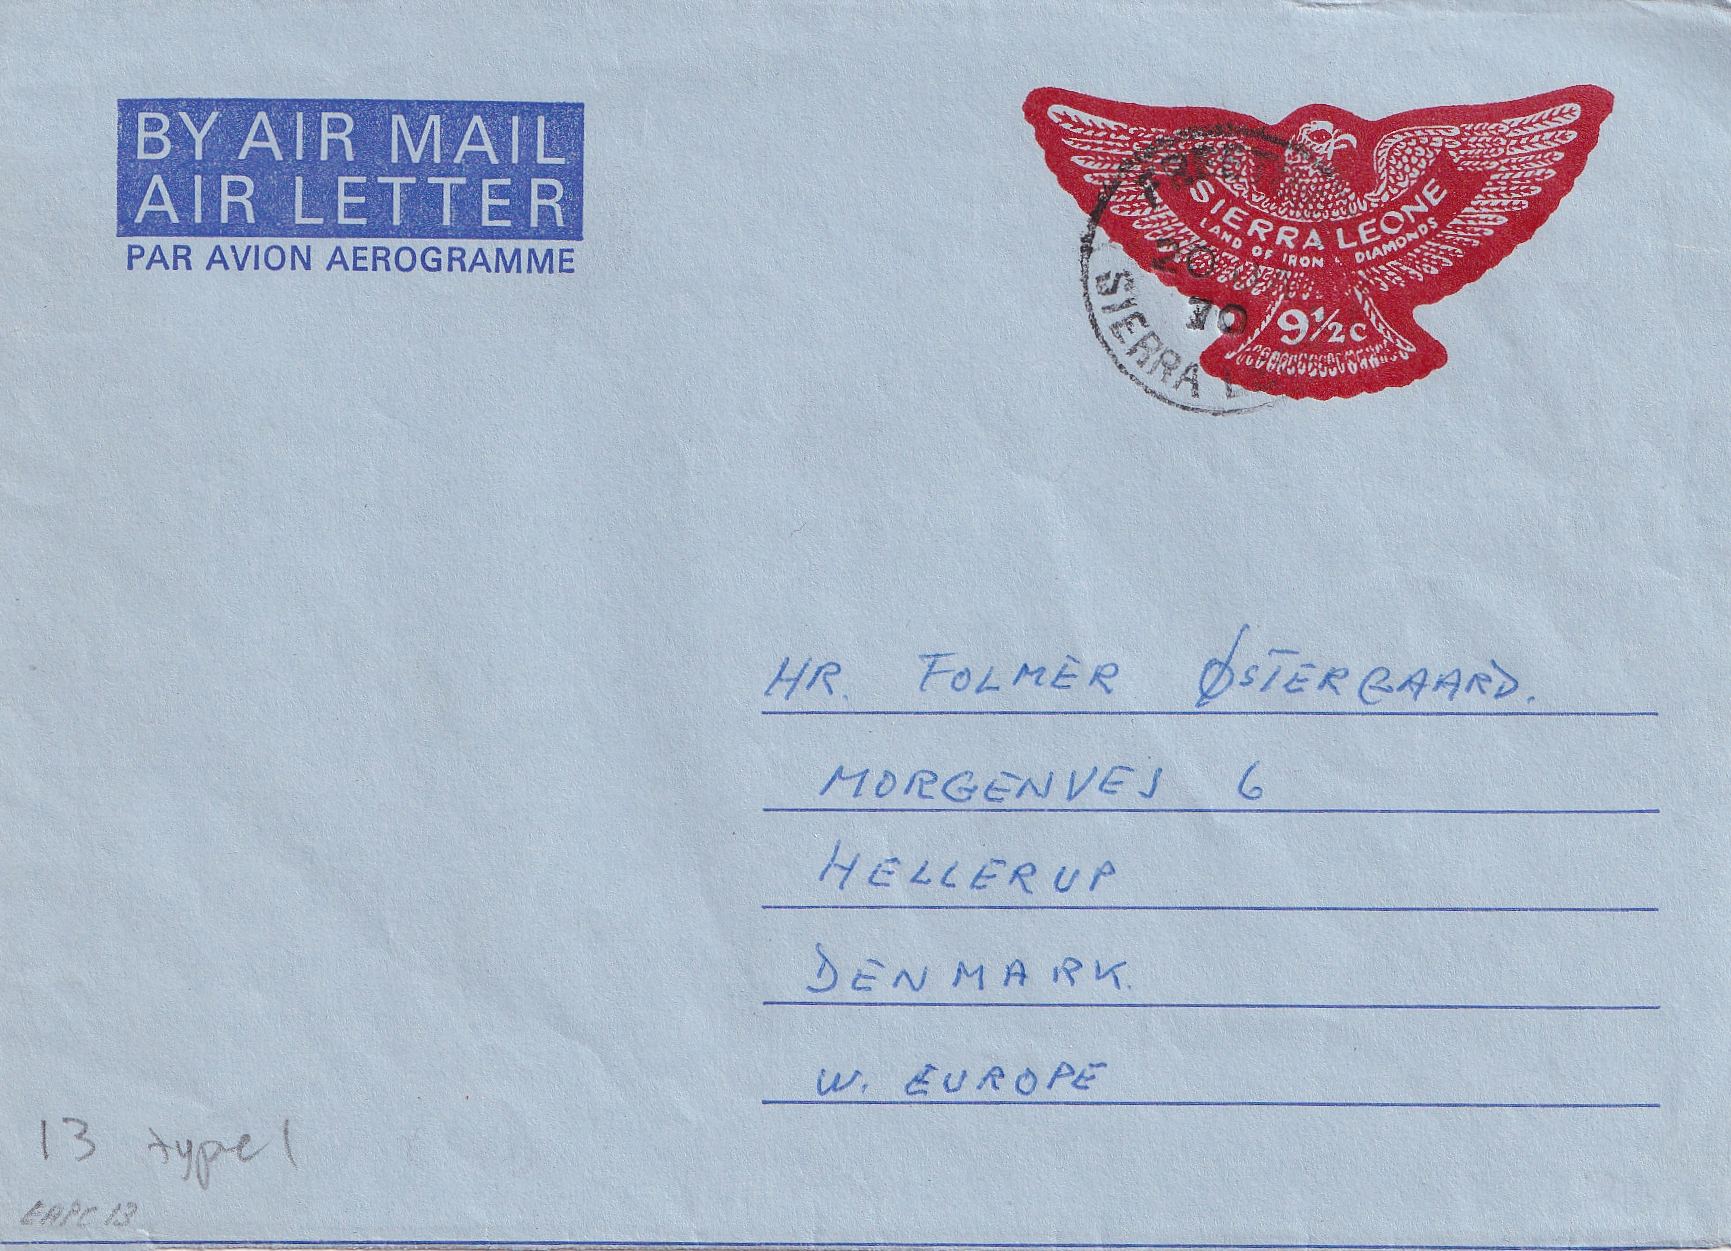 BY AIR MAIL
AIR LETTER
PAR AVION AEROGRAMME
SIERRA LEONE
LAND OF IRON & DIAMONDS
9½c
20
70
SIERRA
HR. FOLMER ØSTERGAARD.
MORGENVEJ 6
HELLERUP
DENMARK.
W. EUROPE
13 type 1
EAPC 13